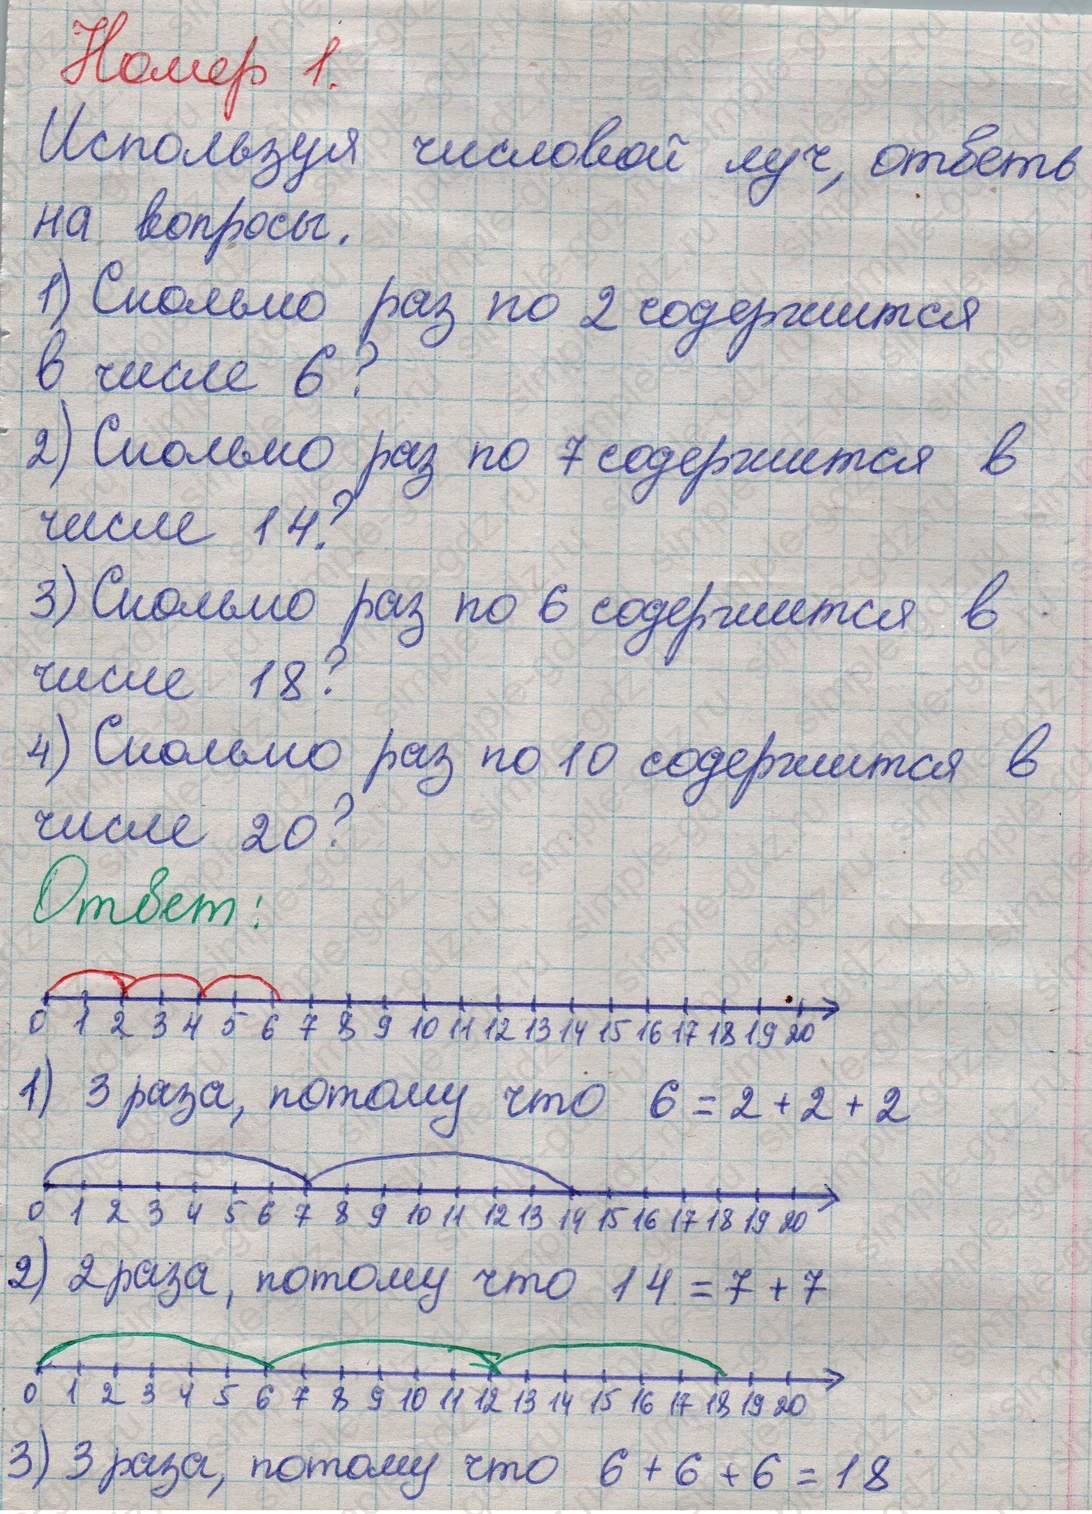 Номер 1.
Используя числовой луч, ответь
на вопросы.
1) Сколько раз по 2 содержится
в числе 6?
2) Сколько раз по 7 содержится в
числе 14?
3) Сколько раз по 6 содержится в
числе 18?
4) Сколько раз по 10 содержится в
числе 20?
Ответ:
0 1 2 3 4 5 6 7 8 9 10 11 12 13 14 15 16 17 18 19 20
1) 3 раза, потому что 6 = 2 + 2 + 2
0 1 2 3 4 5 6 7 8 9 10 11 12 13 14 15 16 17 18 19 20
2) 2 раза, потому что 14 = 7 + 7
0 1 2 3 4 5 6 7 8 9 10 11 12 13 14 15 16 17 18 19 20
3) 3 раза, потому что 6 + 6 + 6 = 18
simple-gdz.ru